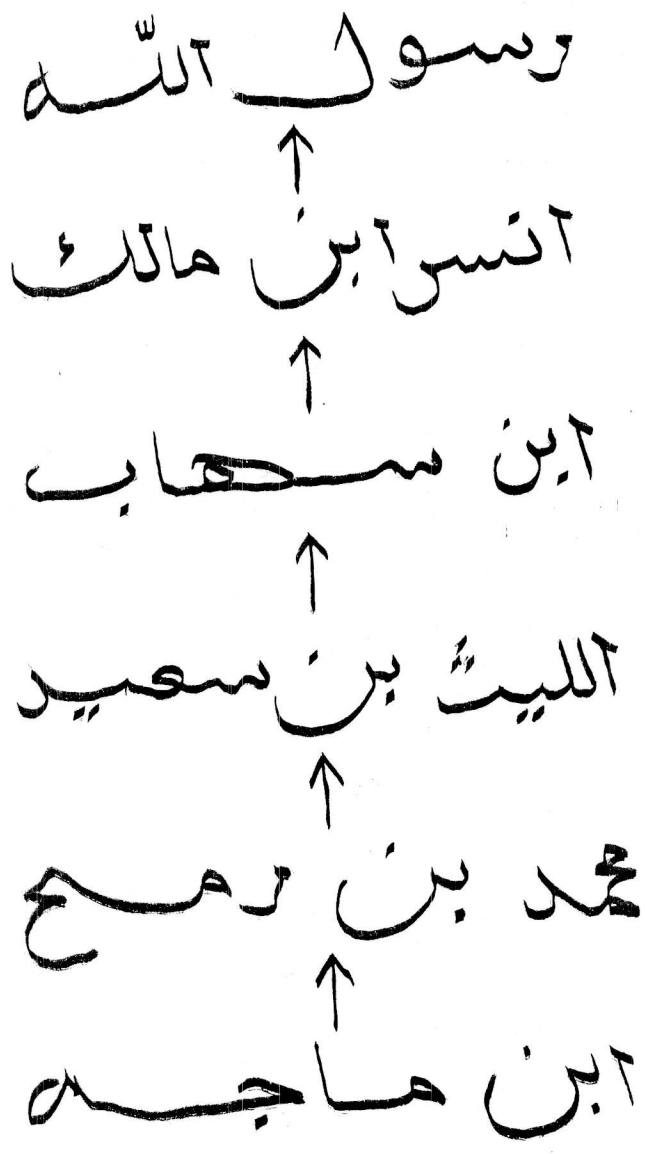 رسول اللّه
انس ابن مالك
ابن سهاب
الليث بن سعيد
محمد بن رمح
ابن ماجه